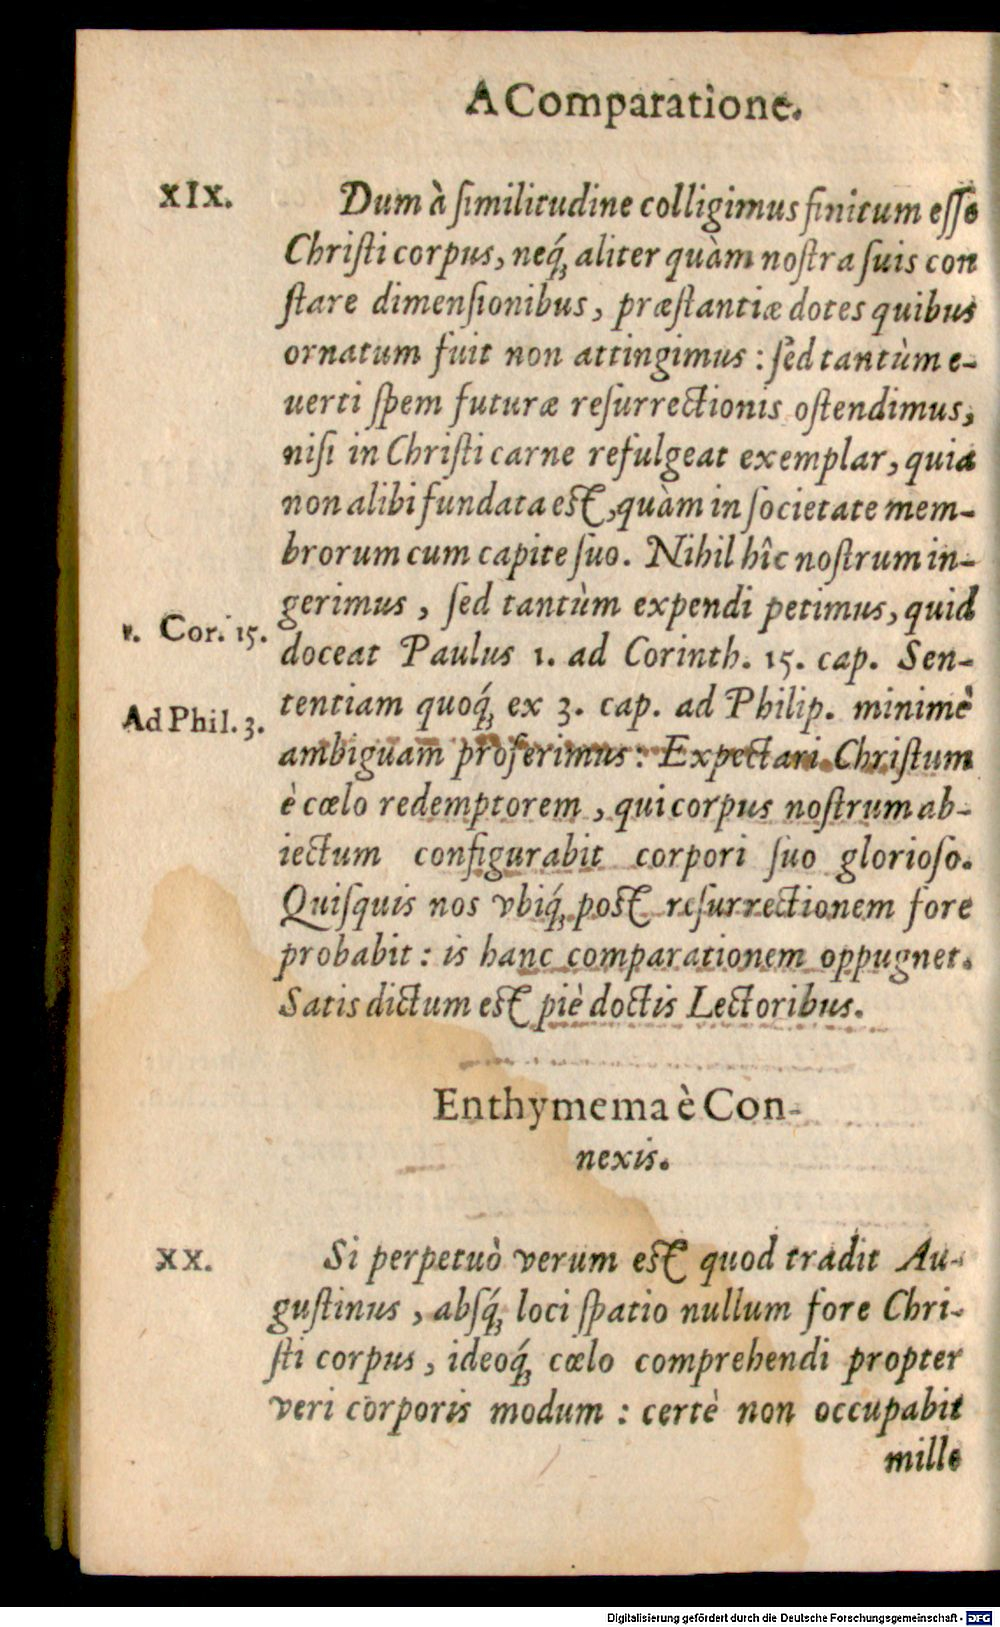 A Comparatione.
XIX. Dum à ſimilitudine colligimus finitum eſſe
Chriſti corpus, neq́ꝫ aliter quàm noſtra ſuis con
ſtare dimenſionibus, præſtantiæ dotes quibus
ornatum fuit non attingimus : ſed tantùm e-
uerti ſpem futuræ reſurrectionis oſtendimus,
niſi in Chriſti carne refulgeat exemplar, quia
non alibi fundata eſt, quàm in ſocietate mem-
brorum cum capite ſuo. Nihil hîc noſtrum in-
gerimus , ſed tantùm expendi petimus, quid
1. Cor. 15.
doceat Paulus 1. ad Corinth. 15. cap. Sen-
tentiam quoq́ꝫ ex 3. cap. ad Philip. minimè
Ad Phil. 3.
ambiguam proferimus: Expectari Chriſtum
è cœlo redemptorem , qui corpus noſtrum ab-
iectum configurabit corpori ſuo glorioſo.
Quiſquis nos vbiq́ꝫ poſt reſurrectionem fore
probabit : is hanc comparationem oppugnet.
Satis dictum eſt piè doctis Lectoribus.
Enthymema è Con-
nexis.
XX. Si perpetuò verum eſt quod tradit Au-
guſtinus , abſq́ꝫ loci ſpatio nullum fore Chri-
ſti corpus , ideoq́ꝫ cœlo comprehendi propter
veri corporis modum : certè non occupabit
mille
Digitalisierung gefördert durch die Deutsche Forschungsgemeinschaft - DFG